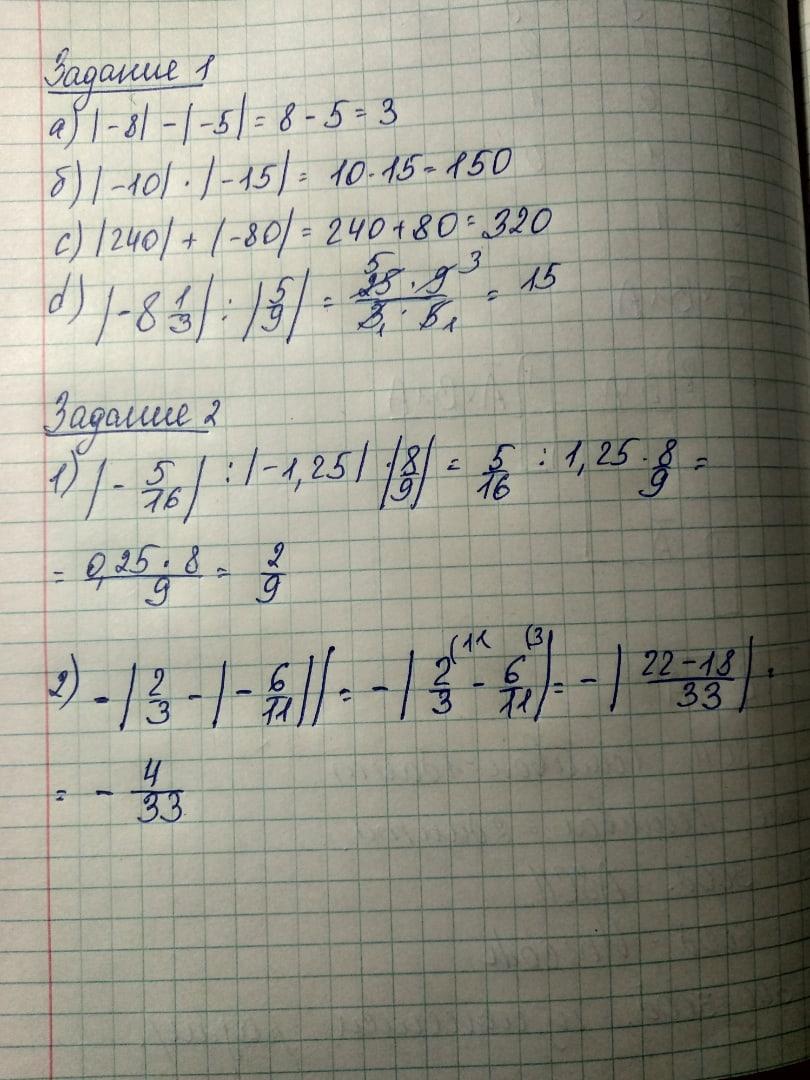 Задание 1
а) |-8| - |-5| = 8 - 5 = 3
б) |-10| · |-15| = 10·15 = 150
с) |240| + |-80| = 240 + 80 = 320
d) |-8 1/3| : |5/9| = 25 · 9 / 3 · 5 = 15
5 3 1 1
Задание 2
1) |-5/16| : |-1,25| · |8/9| = 5/16 : 1,25 · 8/9 =
= 0,25 · 8 / 9 = 2/9
2) -|2/3 - |-6/11|| = -|2/3 (11 - 6/11 (3| = -|22-18/33| =
= - 4/33